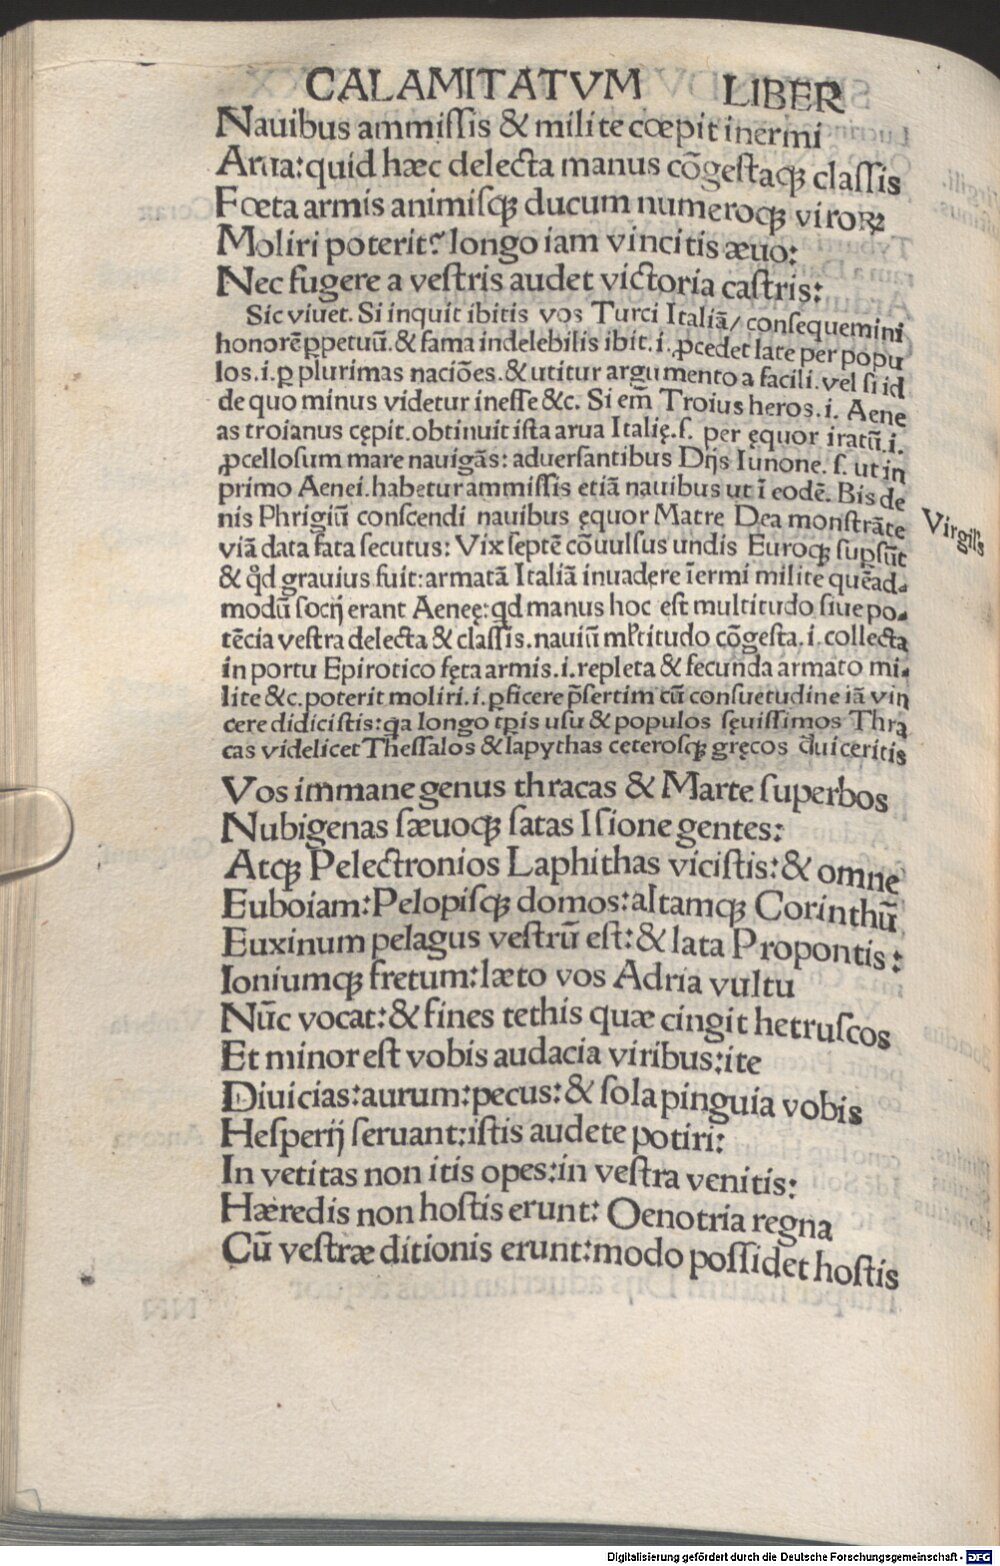 CALAMITATVM LIBER
Nauibus ammiſſis & milite cœpit inermi
Arua: quid hæc delecta manus cõgeſtaqꝫ claſſis
Fœta armis animiſqꝫ ducum numeroqꝫ viroꝝ
Moliri poterit? longo iam vincitis æuo:
Nec fugere a veſtris audet victoria caſtris:
Sic viuet. Si inquit ibitis vos Turci Italiã/ conſequemini
honorẽ ꝑpetuũ. & fama indelebilis ibit. i. ꝓcedet late per popu
los. i. ꝑ plurimas naciões. & utitur argumento a facili. vel ſi id
de quo minus videtur ineſſe &c. Si em̃ Troius heros. i. Aene
as troianus cępit. obtinuit iſta arua Italię. ſ. per ęquor iratũ. i.
ꝓcelloſum mare nauigãs: aduerſantibus Dijs Iunone. ſ. ut in
primo Aenei. habetur ammiſſis etiã nauibus ut ĩ eodẽ. Bis de
nis Phrigiũ conſcendi nauibus ęquor Matre Dea monſtrãte
viã data fata ſecutus: Vix ſeptẽ cõuulſus undis Euroqꝫ ſupſũt
Virgil's
& qd̃ grauius fuit: armatã Italiã inuadere ĩermi milite quẽad-
modũ ſocij erant Aeneę: qd manus hoc eſt multitudo ſiue po-
tẽcia veſtra delecta & claſſis. nauiũ ml'titudo cõgeſta. i. collecta
in portu Epirotico fęta armis. i. repleta & fecunda armato mi-
lite &c. poterit moliri. i. ꝑficere p̃ſertim cũ conſuetudine iã vin
cere didiciſtis: qa longo tp̃is uſu & populos ſęuiſſimos Thra
cas videlicet Theſſalos & lapythas ceteroſqꝫ gręcos duiceritis
Vos immane genus thracas & Marte ſuperbos
Nubigenas ſæuoqꝫ ſatas Iſione gentes:
Atqꝫ Pelectronios Laphithas viciſtis: & omne
Euboiam: Pelopiſqꝫ domos: altamqꝫ Corinthũ
Euxinum pelagus veſtrũ eſt: & lata Propontis:
Ioniumqꝫ fretum: læto vos Adria vultu
Nũc vocat: & fines tethis quæ cingit hetruſcos
Et minor eſt vobis audacia viribus: ite
Diuicias: aurum: pecus: & ſola pinguia vobis
Heſperij ſeruant: iſtis audete potiri:
In vetitas non itis opes: in veſtra venitis:
Hæredis non hoſtis erunt: Oenotria regna
Cũ veſtræ ditionis erunt: modo poſſidet hoſtis
Digitalisierung gefördert durch die Deutsche Forschungsgemeinschaft - DFG